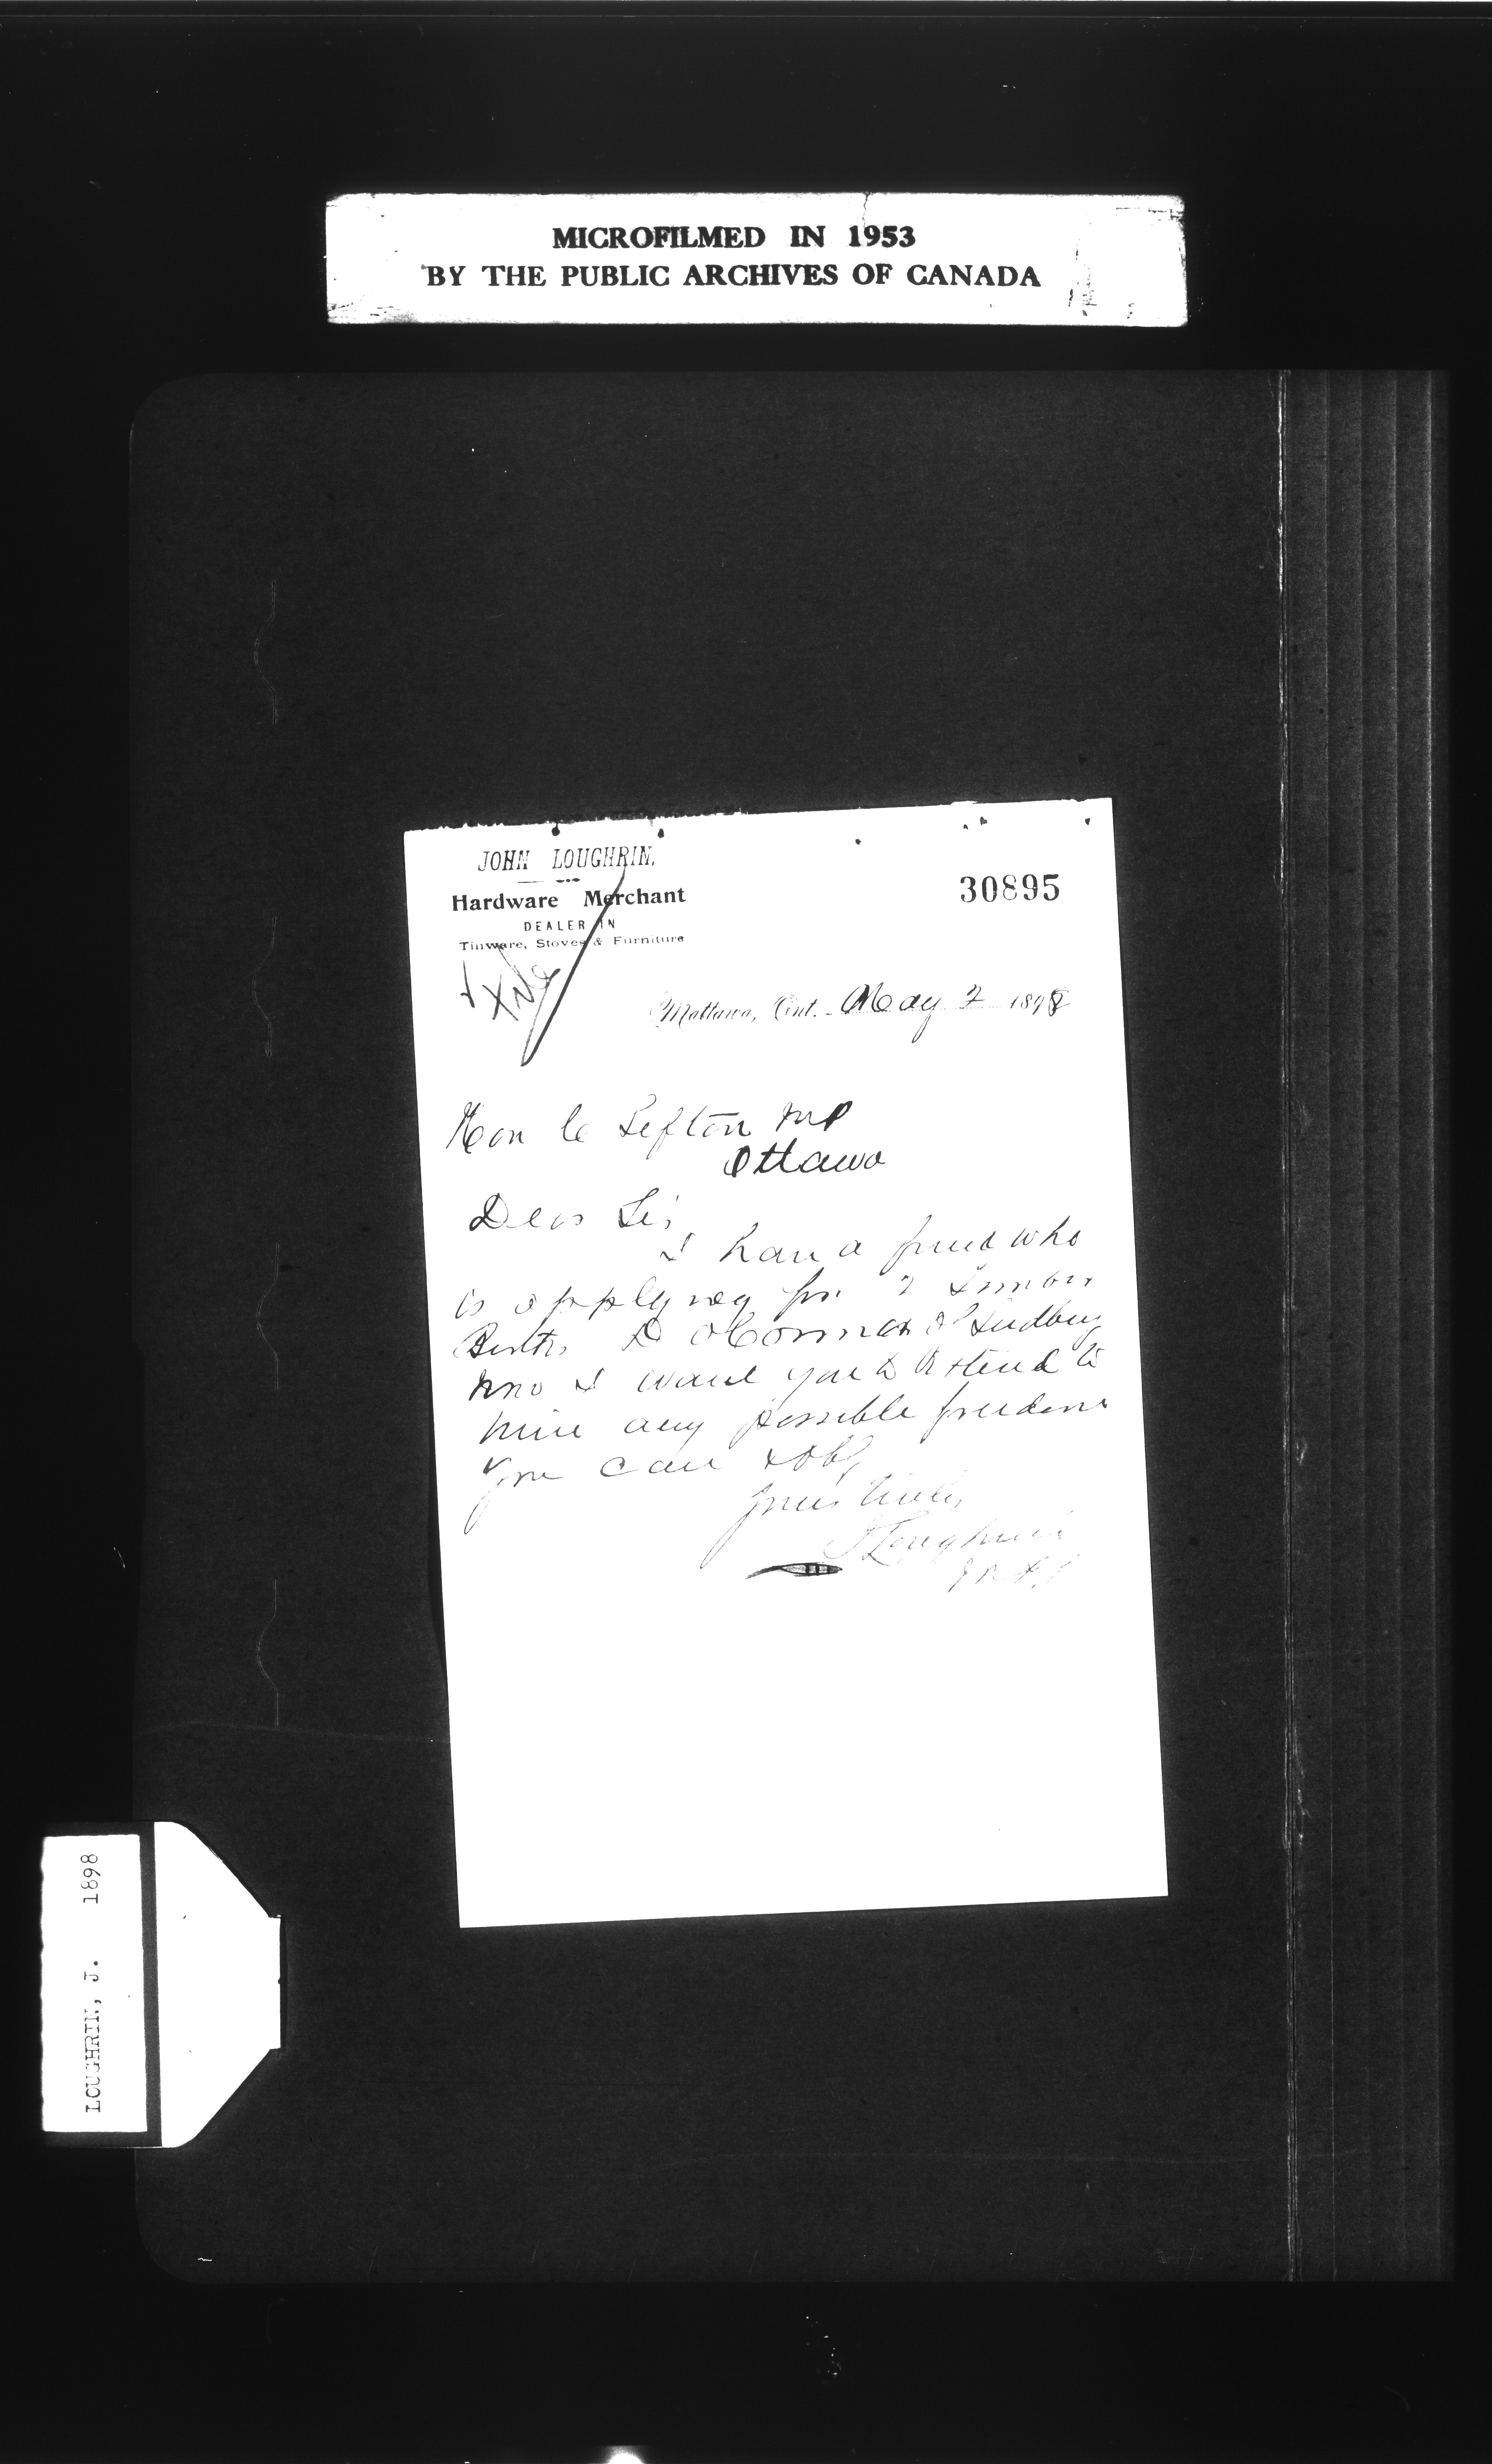 MICROFILMED IN 1953
BY THE PUBLIC ARCHIVES OF CANADA
JOHN LOUGHRIN.
Hardware Merchant
DEALER IN
Tinware, Stoves & Furniture
30895
Mattawa, Ont. May 2 1898
Hon C Sefton MP
Ottawa
Dear Sir,
I have a friend who
is applying for 2 Timber
Berths D OConnor of Sudbury
I want you to extend to
him any possible
you can & obl
yours truly,
J Loughrin
LOUGHRIN, J. 1898